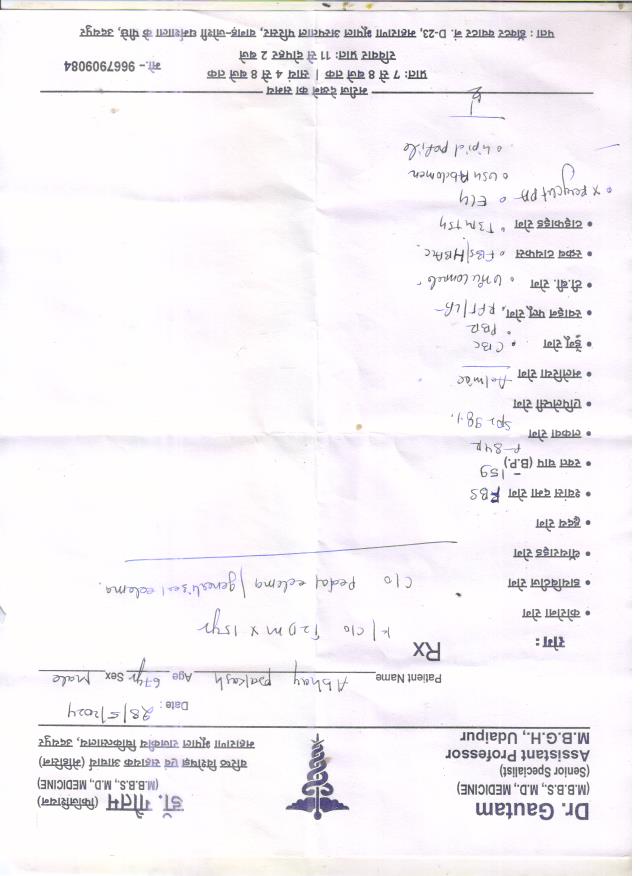 Dr. Gautam
(M.B.B.S., M.D., MEDICINE)
(Senior Specialist)
Assistant Professor
M.B.G.H., Udaipur
डॉ. गौतम (फिजिशियन)
(M.B.B.S., M.D., MEDICINE)
वरिष्ठ विशेषज्ञ एवं सहायक आचार्य (मेडिसिन)
महाराणा भूपाल राजकीय चिकित्सालय, उदयपुर
Date : 28/5/2024
Patient Name Abhay Prakash Age 67yr Sex Male
रोग :
Rx
• कोरोना रोग
K/C/O T2DM x 15yr
• डायबिटीज रोग
C/O Pedal edema / generalised edema.
• थॉयराइड रोग
• हृदय रोग
• श्वांस दमा रोग
RBS
- 159
• रक्त चाप (B.P.)
P-84
• लकवा रोग
SpO2 98%
• एपिलेप्सी रोग
• मलेरिया रोग
• डेंगू रोग
• CBC
• स्वाइन फ्लू रोग
• RFT/LFT
• टी.बी. रोग
• Urine
• स्क्रब टायफस
• FBS/HBA1c
• टाइफाइड रोग
• T3T4TSH
• X Ray Chest PA
• ECG
• USG Abdomen
• Lipid profile
मरीज देखने का समय
प्रातः 7 से 8 बजे तक | सायं 4 से 8 बजे तक
रविवार प्रातः 11 से दोपहर 2 बजे
मो.- 9667909084
पता : डॉक्टर क्वाटर नं. D-23, महाराणा भूपाल अस्पताल परिसर, नागड़ा-जोशी धर्मशाला के पीछे, उदयपुर